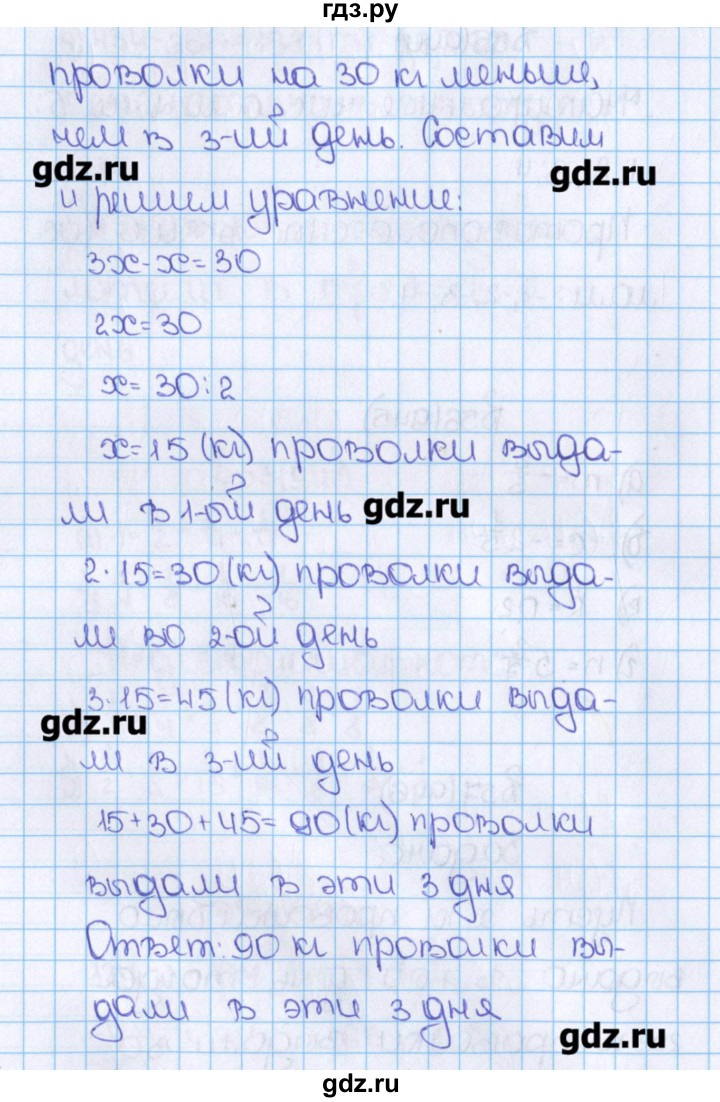 гдз.ру
проволки на 30 кг меньше,
чем в 3-ий день. Составим
gdz.ru
gdz.ru
и решим уравнение:
3x-x=30
2x=30
x=30:2
x=15 (кг) проволки выда-
ли в 1-ый день
gdz.ru
2·15=30(кг) проволки выда-
ли во 2-ой день
3·15=45(кг) проволки выда-
gdz.ru
ли в 3-ий день
15+30+45=90(кг) проволки
выдали в эти 3 дня
Ответ: 90 кг проволки вы-
дали в эти 3 дня
gdz.ru
gdz.ru